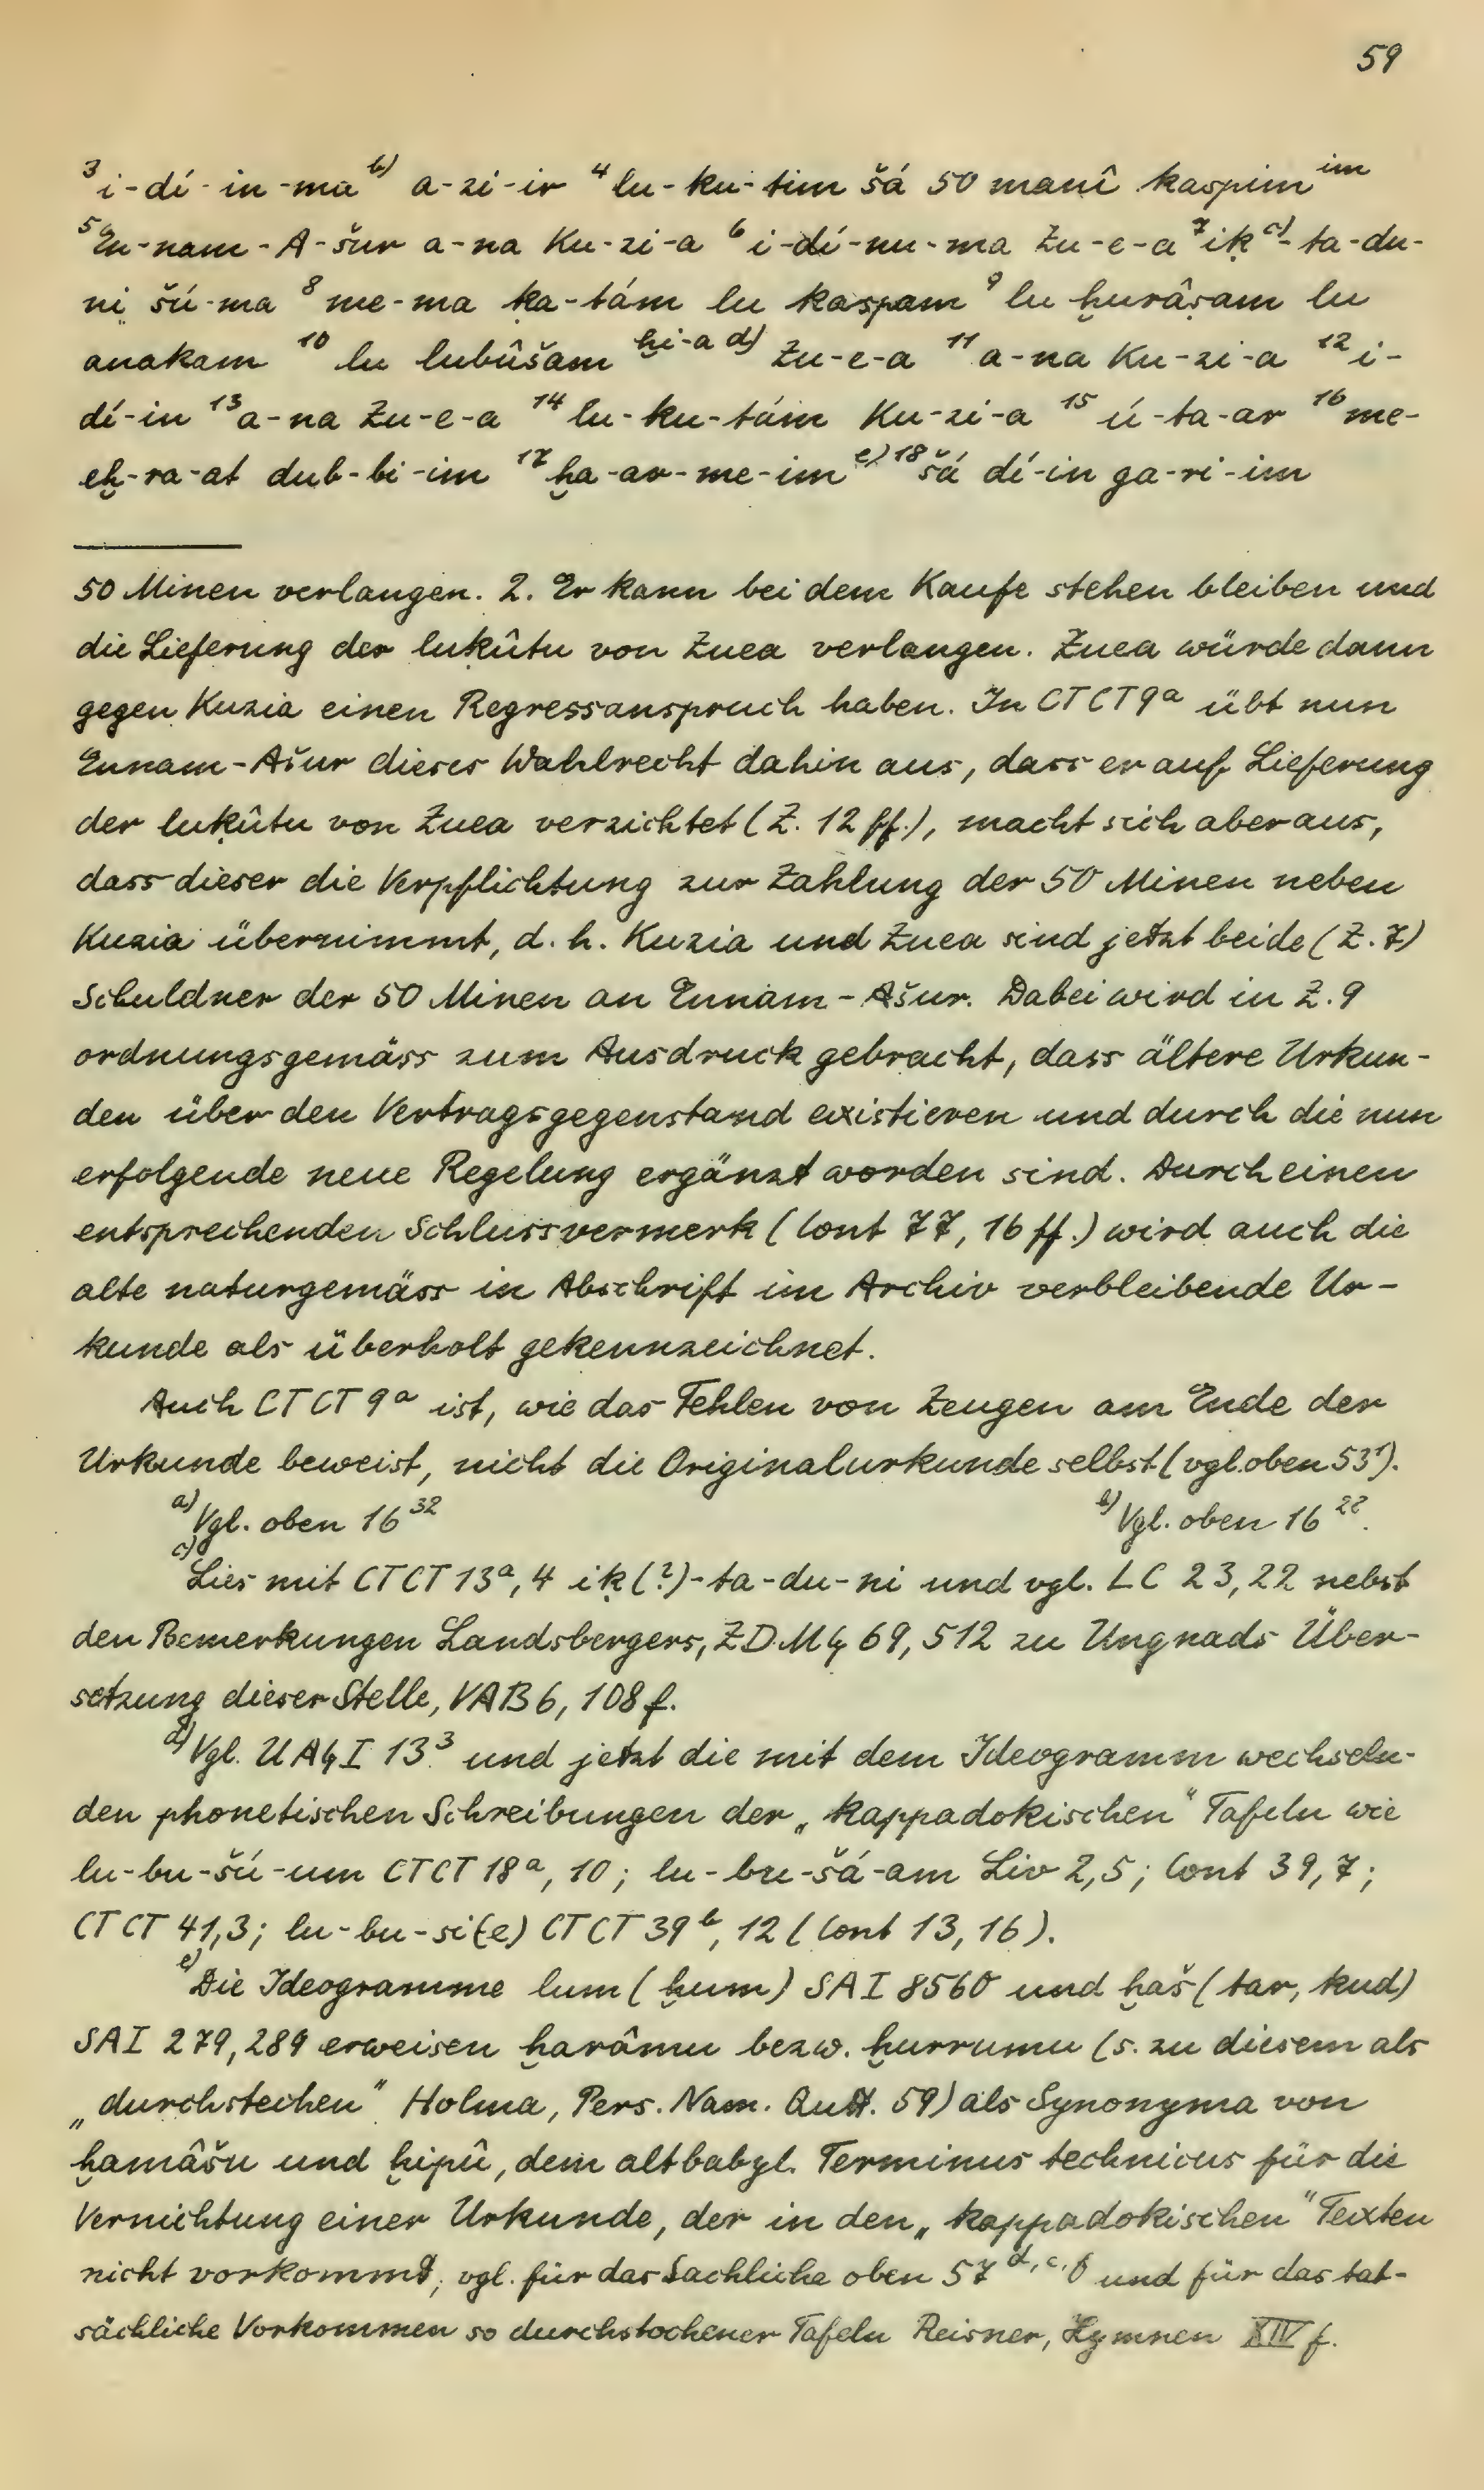 59
³i-dí-in-ma ᵇ⁾ a-zi-ir ⁴lu-ḳu-tim šá 50 manî kaspim ⁱᵐ
⁵En-nam-A-šur a-na Ku-zi-a ⁶i-dí-nu-ma Zu-e-a ⁷iḳ ᶜ⁾-ta-du-
ni šú-ma ⁸me-ma ḳa-tám lu kaspam ⁹lu ḫurâṣam lu
anakam ¹⁰lu lubûšam ḫi-a d) Zu-e-a ¹¹a-na Ku-zi-a ¹²i-
dí-in ¹³a-na Zu-e-a ¹⁴lu-ḳu-tám Ku-zi-a ¹⁵ú-ta-ar ¹⁶me-
eḫ-ra-at dub-bi-im ¹⁷ḫa-ar-me-im ᵉ⁾ ¹⁸šá dí-in ga-ri-im
50 Minen verlangen. 2. Er kann bei dem Kaufe stehen bleiben und
die Lieferung der luḳûtu von Zuea verlangen. Zuea würde dann
gegen Kuzia einen Regressanspruch haben. In CTCT 9ᵃ übt nun
Ennam-Ašur dieses Wahlrecht dahin aus, dass er auf Lieferung
der luḳûtu von Zuea verzichtet (Z. 12 ff.), macht sich aber aus,
dass dieser die Verpflichtung zur Zahlung der 50 Minen neben
Kuzia übernimmt, d. h. Kuzia und Zuea sind jetzt beide (Z. 7)
Schuldner der 50 Minen an Ennam-Ašur. Dabei wird in Z. 9
ordnungsgemäss zum Ausdruck gebracht, dass ältere Urkun-
den über den Vertragsgegenstand existieren und durch die nun
erfolgende neue Regelung ergänzt worden sind. Durch einen
entsprechenden Schlussvermerk (Cont 77, 16 ff.) wird auch die
alte naturgemäss in Abschrift im Archiv verbleibende Ur-
kunde als überholt gekennzeichnet.
Auch CTCT 9ᵃ ist, wie das Fehlen von Zeugen am Ende der
Urkunde beweist, nicht die Originalurkunde selbst (vgl. oben 53¹).
a) Vgl. oben 16³² b) Vgl. oben 16²².
c) Lies mit CTCT 13ᵃ, 4 iḳ(?)-ta-du-ni und vgl. LC 23,22 nebst
den Bemerkungen Landsbergers, ZDMG 69, 512 zu Ungnads Über-
setzung dieser Stelle, VAB 6, 108 f.
d) Vgl. UAG I 13³ und jetzt die mit dem Ideogramm wechseln-
den phonetischen Schreibungen der „kappadokischen" Tafeln wie
lu-bu-šú-um CTCT 18ᵃ, 10; lu-bu-šá-am Liv 2,5; Cont 39,7;
CTCT 41,3; lu-bu-si(e) CTCT 39ᵇ, 12 (Cont 13, 16).
e) Die Ideogramme lum (ḫum) SAI 8560 und ḫaš (tar, kud)
SAI 279, 289 erweisen ḫarâmu bezw. ḫurrumu (s. zu diesem als
„durchstechen" Holma, Pers. Nam. Qutt. 59) als Synonyma von
ḫamâšu und ḫipû, dem altbabyl. Terminus technicus für die
Vernichtung einer Urkunde, der in den „kappadokischen" Texten
nicht vorkommt; vgl. für das Sachliche oben 57 d, c, f und für das tat-
sächliche Vorkommen so durchstochener Tafeln Reisner, Hymnen XIV f.